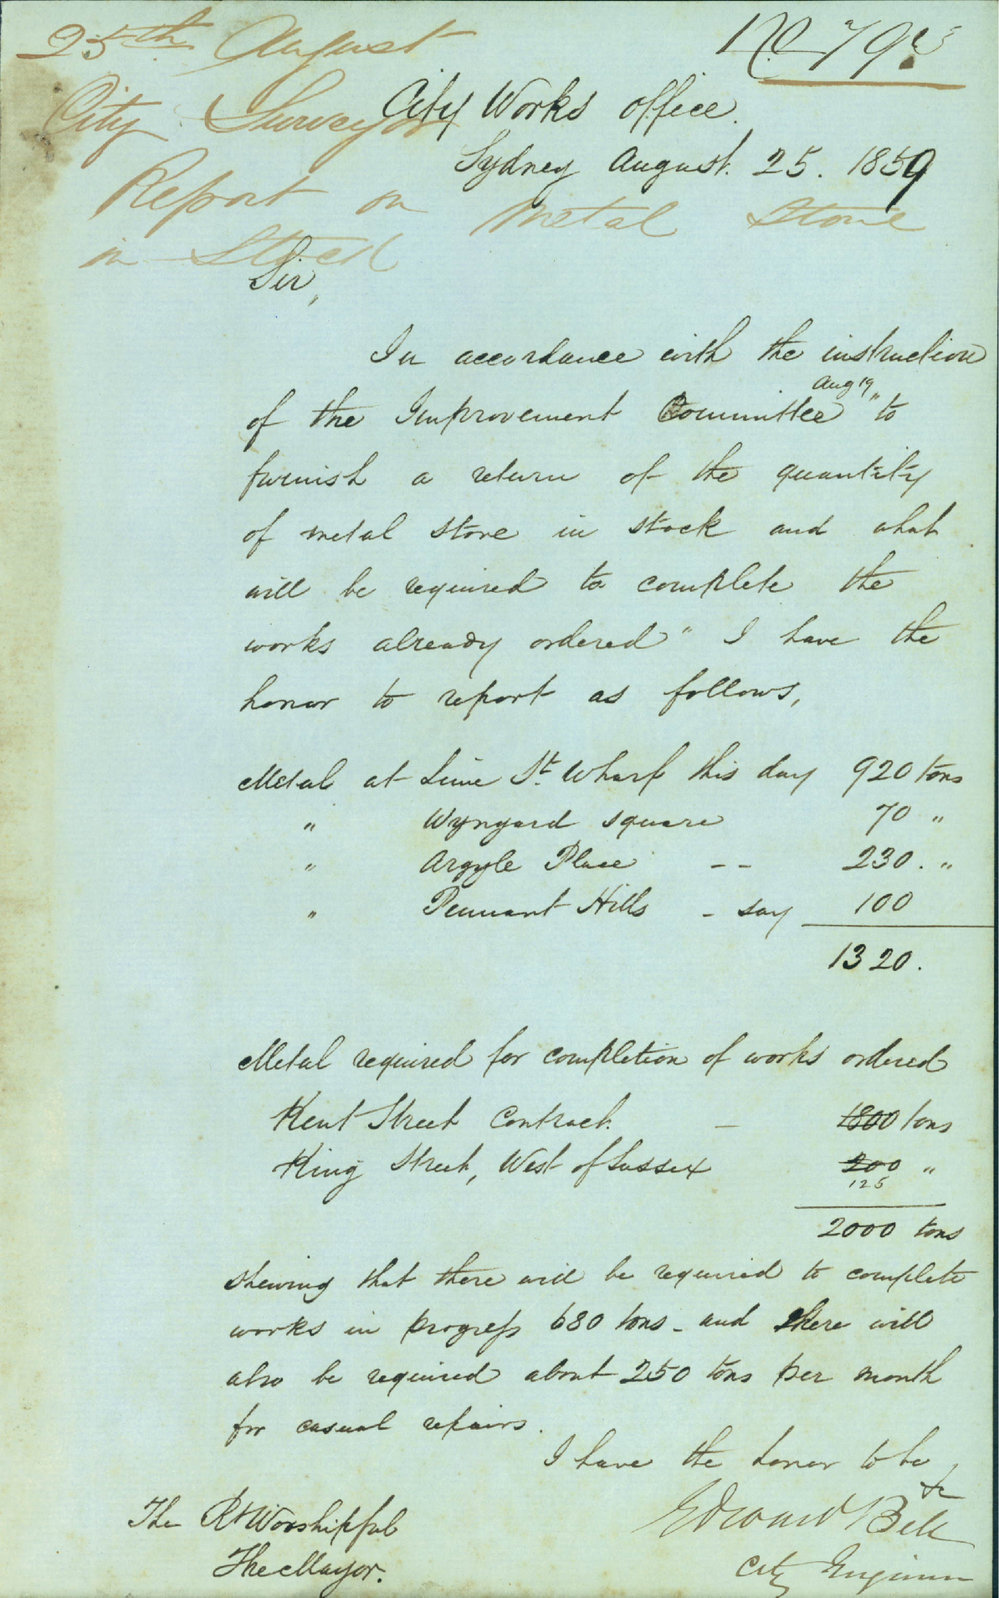 25th August
No 79
City Surveyor
City Works Office.
Sydney August. 25. 1859
Report on Metal Stone
in Stock
Sir,
In accordance with the instruction
Aug 19
of the Improvement Committee " to
furnish a return of the quantity
of metal stone in stock and what
will be required to complete the
works already ordered " I have the
honor to report as follows,
Metal at Lime St. Wharf this day 920 tons
" Wynyard square 70 "
" Argyle Place - - 230. "
" Pennant Hills - say 100
1320.
Metal required for completion of works ordered
Kent Street Contract. - 1800 tons
King Street, West of Sussex 200 "
125
2000 tons
shewing that there will be required to complete
works in progress 680 tons - and there will
also be required about 250 tons per month
for casual repairs.
I have the honor to be
&c
The Rt Worshipful
Edward Bell
The Mayor.
City Engineer